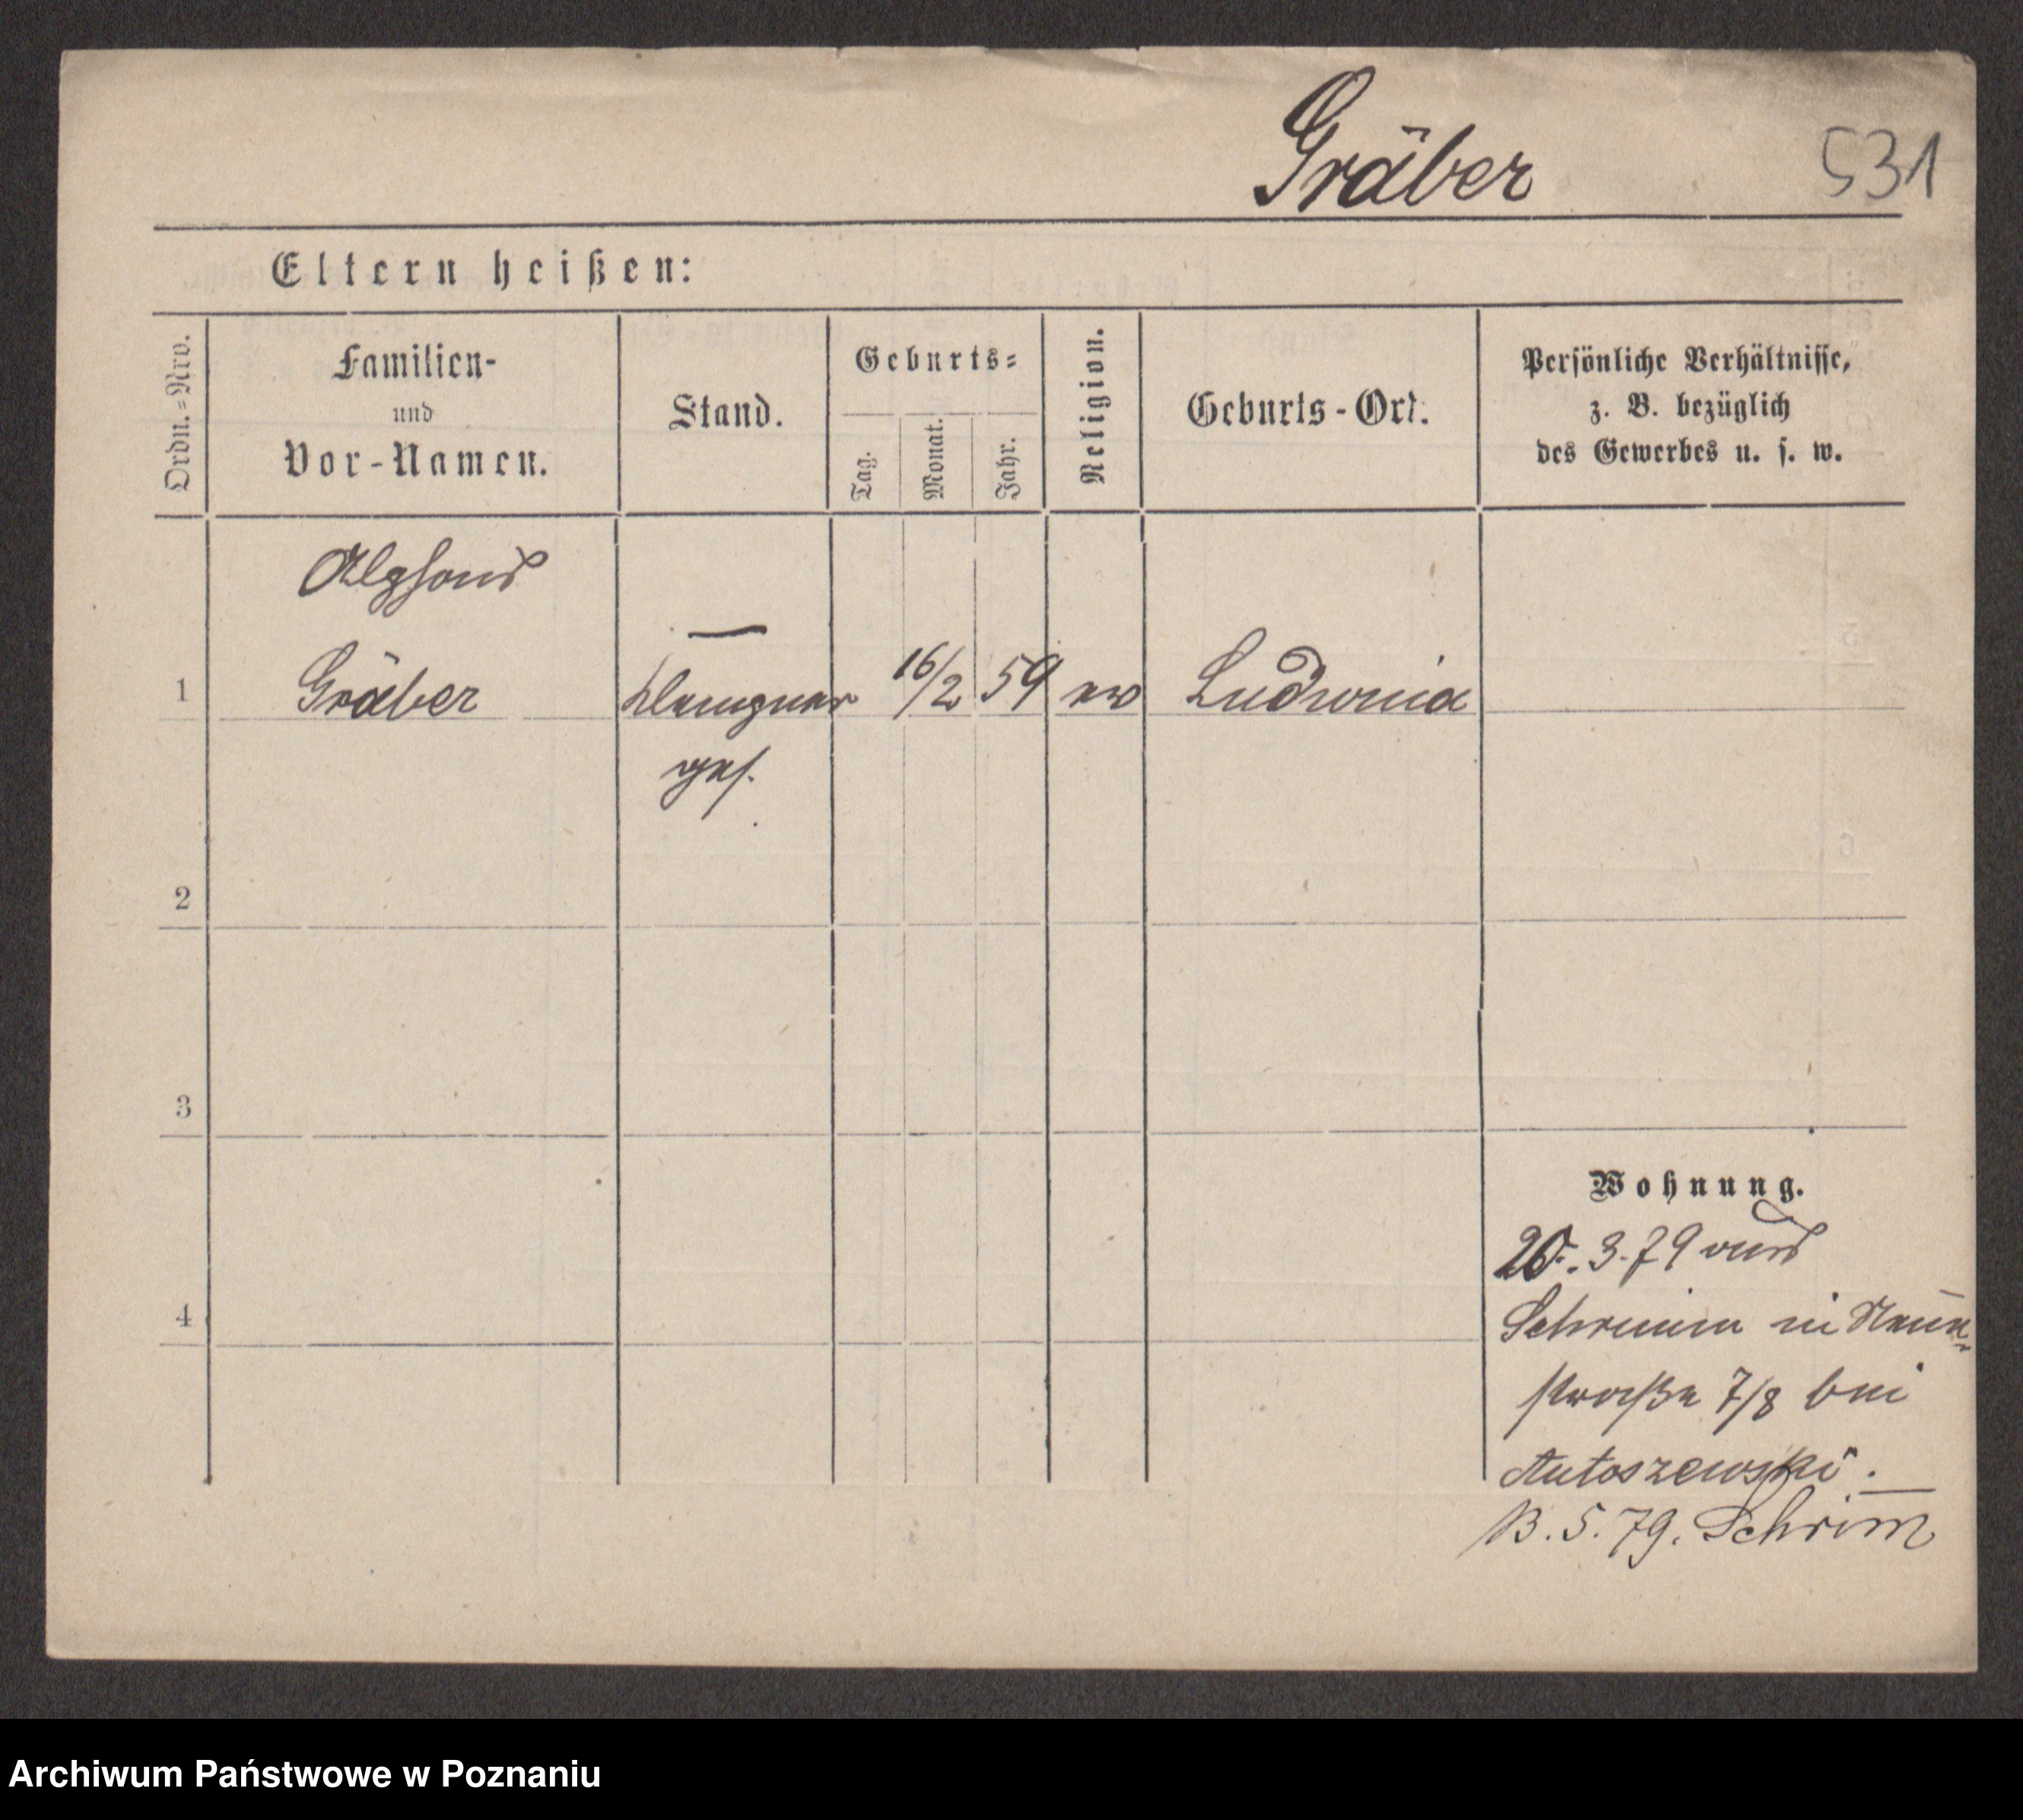 Gräber
531
Eltern heißen:
Ordn.=Nro.
Familien-
und
Vor-Namen.
Stand.
Geburts=
Tag.
Monat.
Jahr.
Religion.
Geburts-Ort.
Persönliche Verhältnisse,
z. B. bezüglich
des Gewerbes u. s. w.
Alphons
1 Gräber Klempner 16/2 59 ev Ludwinia
ges.
2
3
4
Wohnung.
20. 3. 79 aus
Schrimm in Neue
straße 7/8 bei
Antoszewski.
13. 5. 79. Schrim
Archiwum Państwowe w Poznaniu